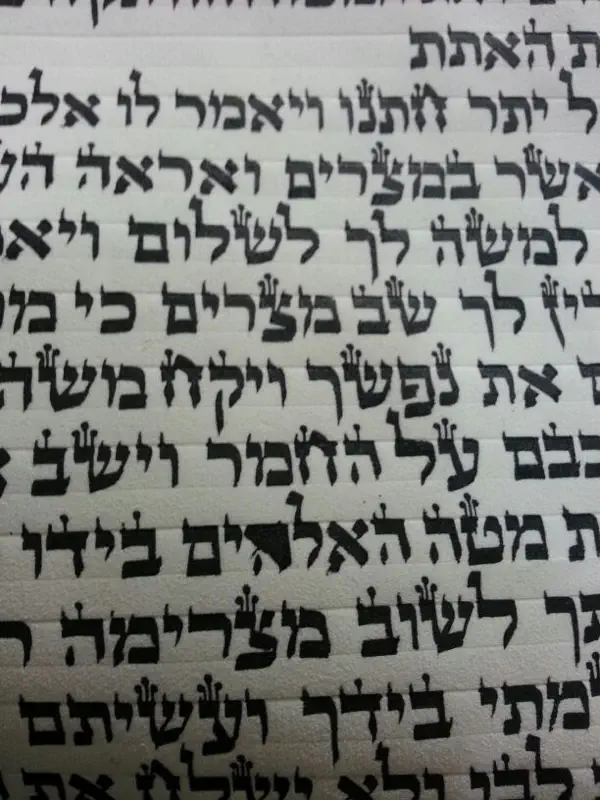 האתת
יתר חתנו ויאמר לו אלכ
אשר במצרים ואראה
למשה לך לשלום ויא
ין לך שב מצרים כי
את נפשך ויקח משה
כבם על החמר וישב
ת מטה האלהים בידו
תך לשוב מצרימה
שמתי בידך ועשיתם
לבו ולא ישלח את